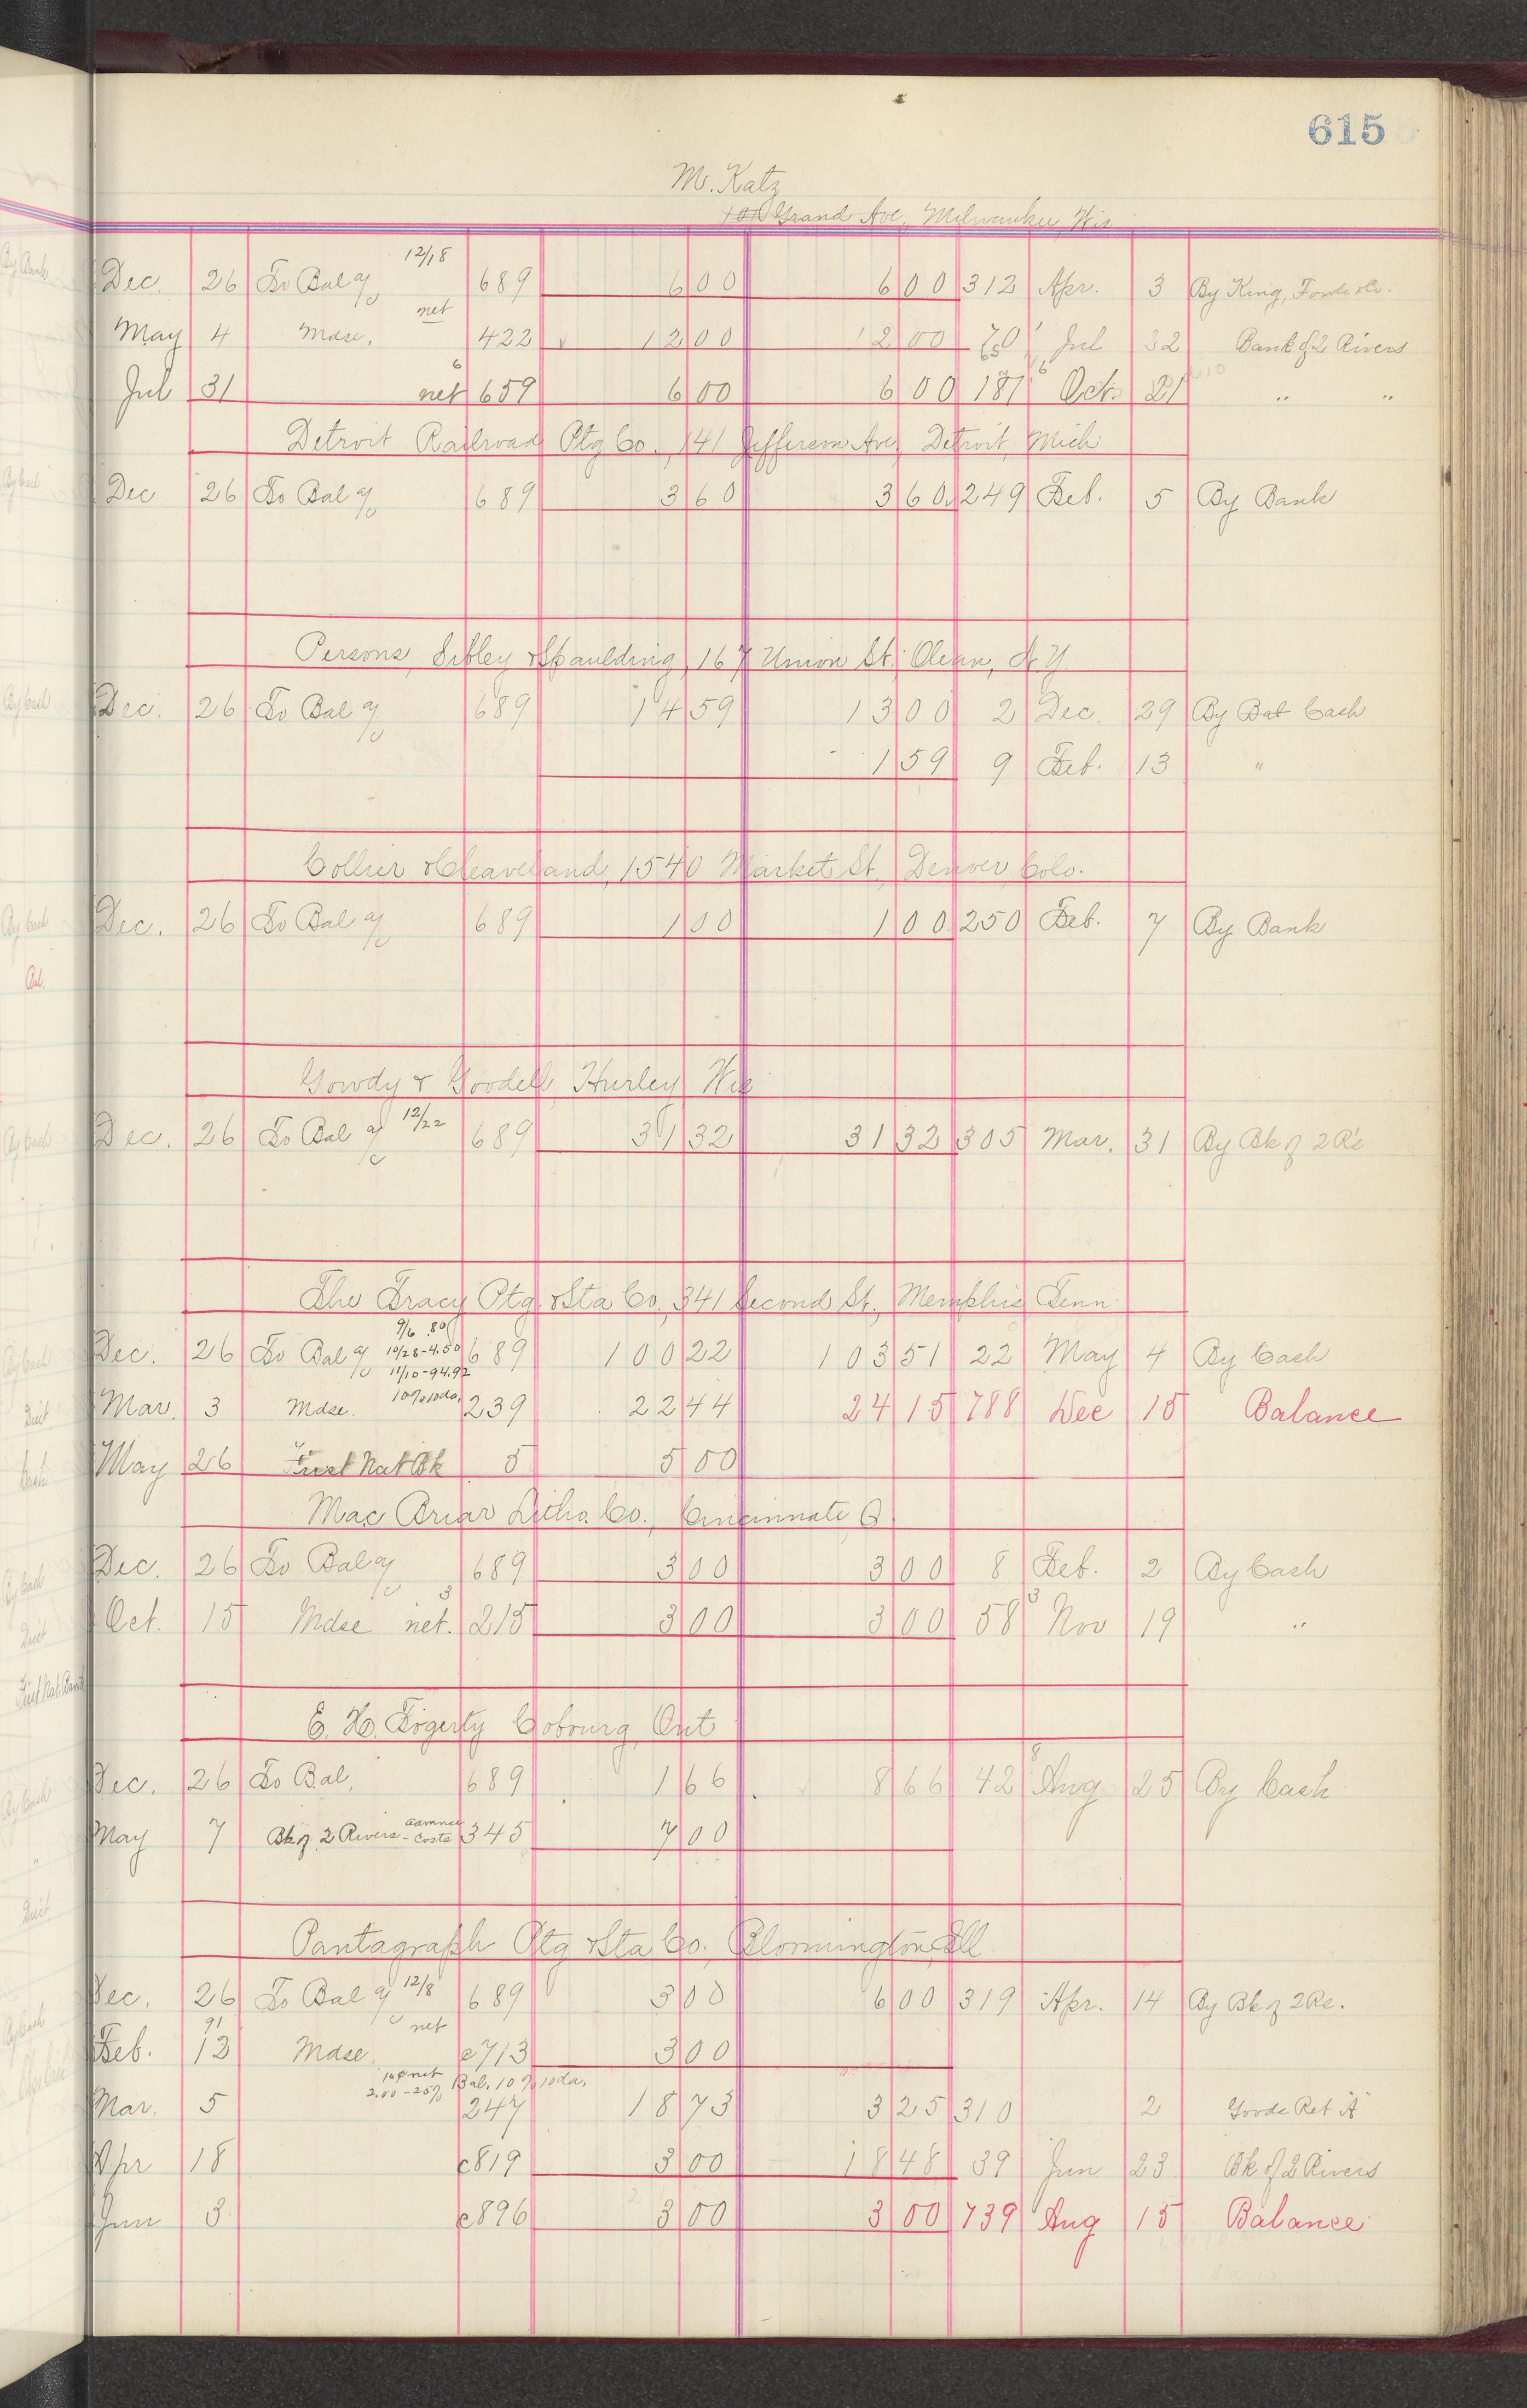 615
M. Katz
Grand Ave, Milwaukee Wis
12/18
Dec. 26 To Bal a/c 689 6 00 6 00 312 Apr. 3 By King,
net
May 4 Mdse. 422 12 00 12 00 Jul Bank of 2 Rivers
Jul 31 net 659 6 00 6 00 187 Oct 21 " "
Detroit Railroad Ptg Co., 141 Jefferson Ave, Detroit, Mich
Dec 26 To Bal a/c 689 3 60 3 60 249 Feb. 5 By Bank
Persons, Sibley & Spaulding, 167 Union St; Olean, N Y
Dec. 26 To Bal a/c 689 14 59 13 00 2 Dec. 29 By Bal Cash
1 59 9 Feb. 13 "
Collier & Cleaveland, 1540 Market St. Denver, Colo.
Dec. 26 To Bal a/c 689 1 00 1 00 250 Feb. 7 By Bank
Gowdy & Goodell, Hurley Wis
Dec. 26 To Bal a/c 12/22 689 31 32 31 32 305 Mar. 31 By Bk of 2 Rs
The Tracy Ptg & Sta Co, 341 Second St., Memphis, Tenn
9/6 .80
Dec. 26 To Bal a/c 10/28-4.50 689 100 22 103 51 22 May 4 By Cash
11/10-94.92
Mar. 3 Mdse. 10% 10 da. 239 22 44 24 15 788 Dec 15 Balance
May 26 First Nat Bk 5 5 00
Mac Briar Litho. Co., Cincinnati O
Dec. 26 To Bal a/c 689 3 00 3 00 8 Feb. 2 By Cash
Oct. 15 Mdse net. 215 3 00 3 00 58 Nov 19 "
E. H. Fogerty Cobourg, Ont
Dec. 26 To Bal. 689 1 66 8 66 42 Aug 25 By Cash
May 7 Bk of 2 Rivers - advance costs 345 7 00
Pantagraph Ptg & Sta Co., Bloomington, Ill
Dec. 26 To Bal a/c 12/8 689 3 00 6 00 319 Apr. 14 By Bk of 2 Rs.
91 net
Feb. 12 Mdse. c713 3 00
net
2.00-25% Bal. 10% 10 da.
Mar. 5 247 18 73 3 25 310 2 Goods Ret "A"
Apr 18 c819 3 00 18 48 39 Jun 23 Bk of 2 Rivers
Jun 3 c896 3 00 3 00 739 Aug 15 Balance